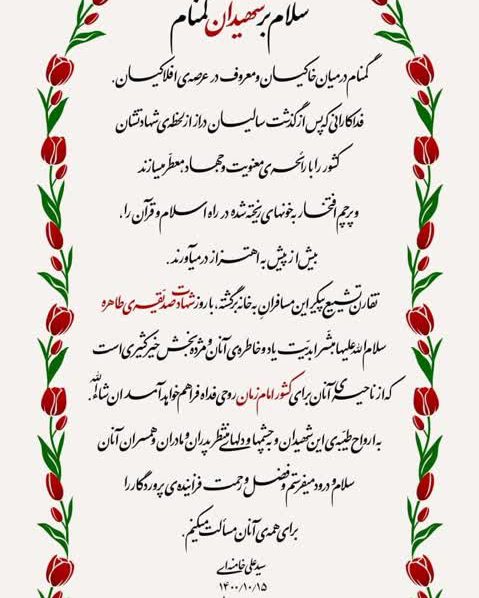 سلام بر شهیدان گمنام
گمنام در میان خاکیان و معروف در عرصه‌ی افلاکیان.
فداکارانی که پس از گذشت سالیان دراز از لحظه‌ی شهادتشان
کشور را با رائحه‌ی معنویت و جهاد معطّر میسازند
و پرچم افتخار به خونهای ریخته شده در راه اسلام و قرآن را،
بیش از پیش به اهتزاز درمیآورند.
تقارن تشییع پیکر این مسافران به خانه برگشته، با روز شهادت صدیقه‌ی طاهره
سلام‌الله‌علیها مبشّر ابدیّت یاد و خاطره‌ی آنان و مژده‌بخش خیر کثیری است
که از ناحیه‌ی آنان برای کشور امام زمان روحی فداه فراهم خواهد آمد ان شاءالله.
به ارواح طیّبه‌ی این شهیدان و به چشمها و دلهای منتظر پدران و مادران و همسران آنان
سلام و درود میفرستم و فضل و رحمت فزاینده‌ی پروردگار را
برای همه‌ی آنان مسألت میکنم.
سیدعلی خامنه‌ای
۱۴۰۰/۱۰/۱۵